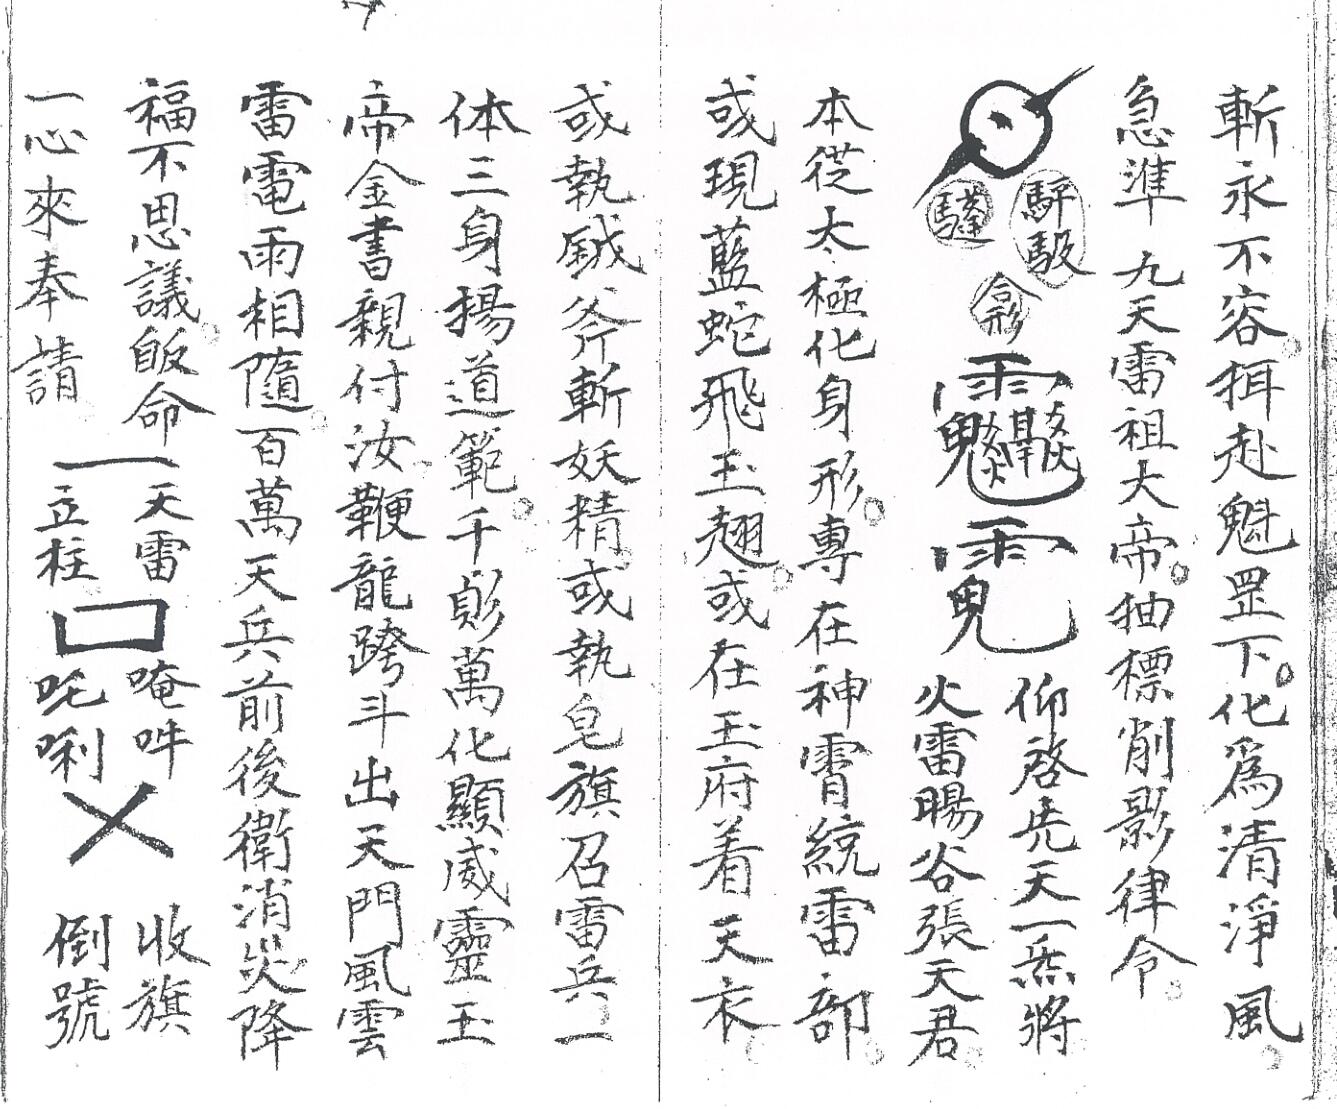 斬永不容拒赴魁罡下化爲清淨風
急準九天雷祖大帝抽標削影律令
仰啓先天一炁將
火雷暘谷張天君
本從太極化身形專在神霄統雷部
或現藍蛇飛玉翅或在玉府着天衣
或執鉞斧斬妖精或執皂旗召雷兵一
体三身揚道範千彭萬化顯威靈玉
帝金書親付汝鞭龍跨斗出天門風雲
雷電雨相隨百萬天兵前後衛消災降
福不思議皈命
一心來奉請
天雷
立柱
唵吽
吒唎
收旗
倒號